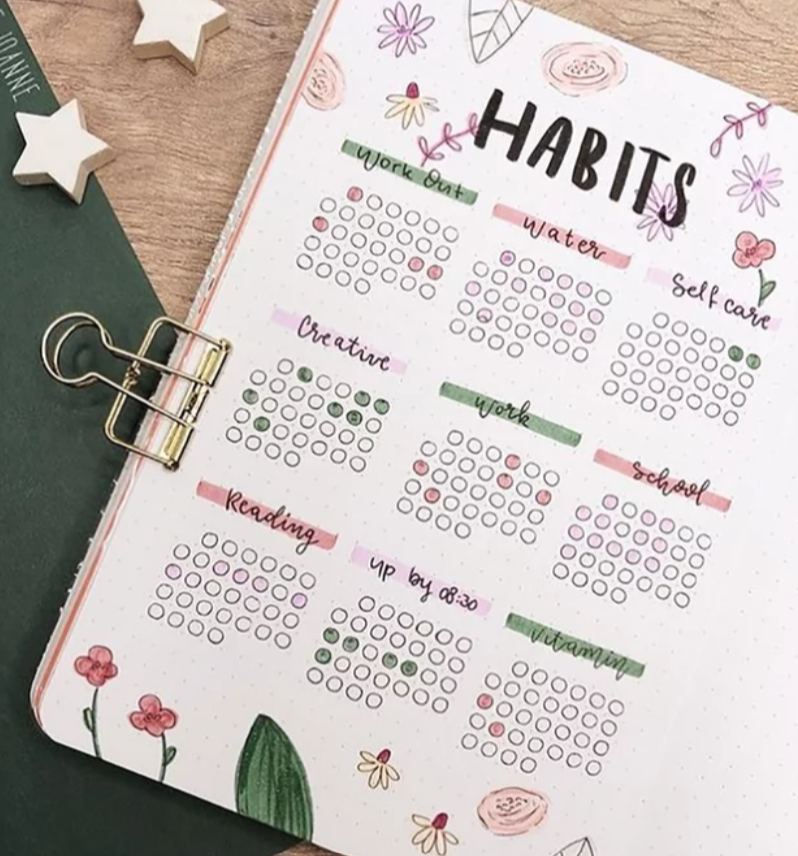 JOANNE
HABITS
Work Out
Water
Self care
Creative
Work
School
Reading
up by 08:30
Vitamin